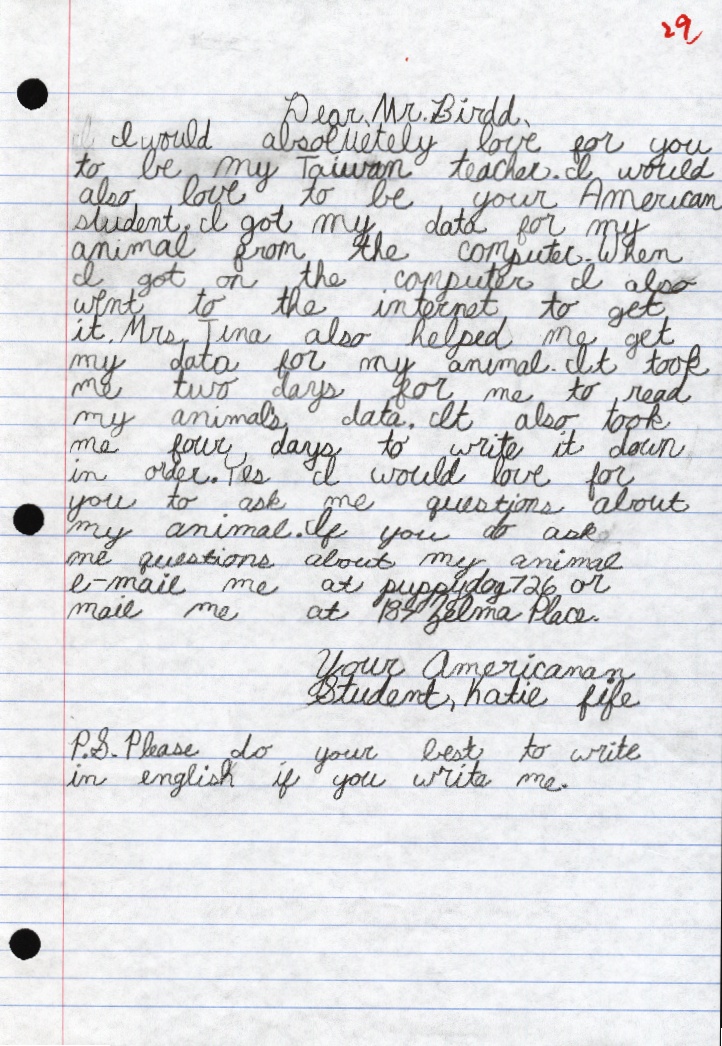 29
Dear, Mr. Birdd,
I would absoluetely love for you
to be my Taiwan teacher. I would
also love to be your American
student. I got my data for my
animal from the computer. When
I got on the computer I also
went to the internet to get
it. Mrs. Tina also helped me get
my data for my animal. It took
me two days for me to read
my animals data. It also took
me four days to write it down
in order. Yes I would love for
you to ask me questions about
my animal. If you do ask
me questions about my animal
e-mail me at puppydog726 or
mail me at Zelma Place.
Your Americanan
Student, Katie fife
P.S. Please do your best to write
in english if you write me.